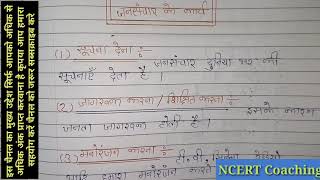 जनसंचार के कार्य
(1) सूचना देना :-
जनसंचार दुनिया भर की
सूचनाएँ देता है।
(2) जागरूक करना / शिक्षित करना :-
इसके कारण
जनता जागरूक होती है।
(3) मनोरंजन करना :-
टी.वी. सिनेमा रेडियो
मनोरंजन करते
इस चैनल का मुख्य उद्देश सिर्फ आपको अधिक से
अधिक अंक प्राप्त करवाना है कृपया आप हमारा
सहयोग करें चैनल को जरूर सब्सक्राइब करे
NCERT Coaching